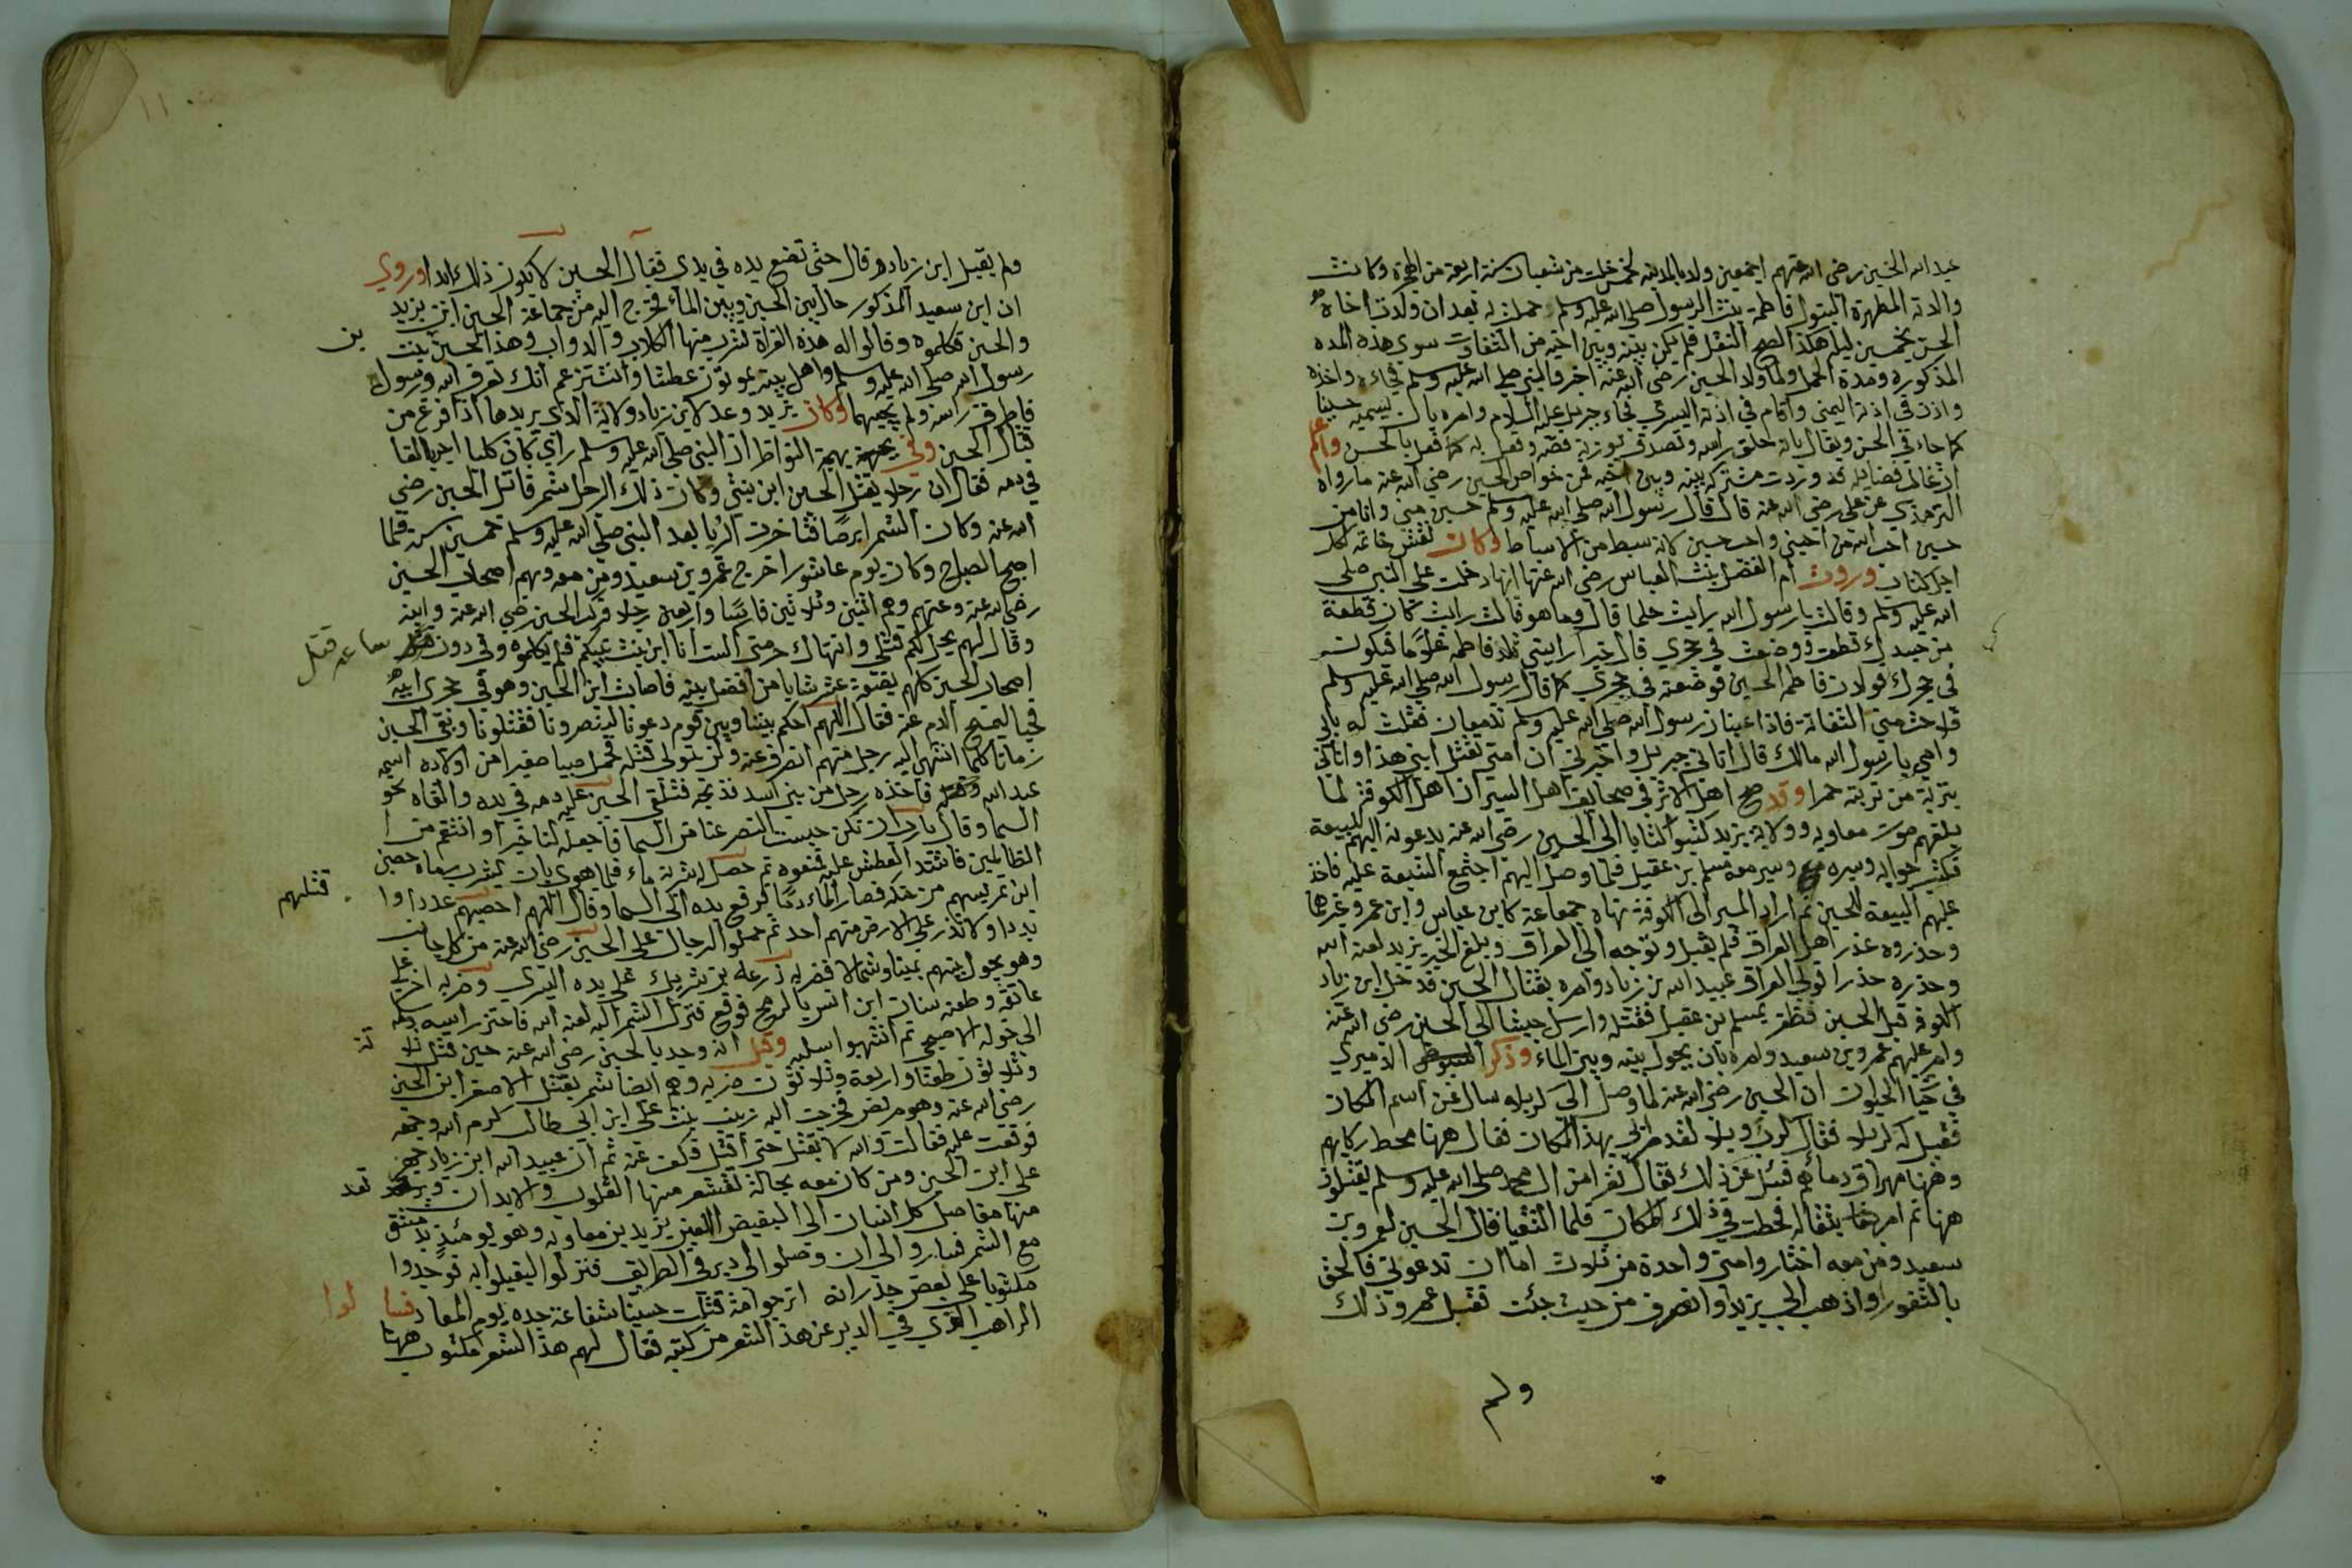 عبد الله الحسين رضي الله عنهم اجمعين ولد بالمدينه لخمس خلت من شعبان سنة اربعة من الهجرة وكانت
والدته المطهرة البتول فاطمة بنت الرسول صلى الله عليه وسلم حملت به بعد ان ولدت اخاه
الحسن بخمسين ليلة هكذا صح النقل فلم يكن بينه وبين اخيه من التفاوت سوى هذه المده
المذكوره ومدة الحمل ولما ولد الحسين رضي الله عنه اخبر النبي صلى الله عليه وسلم فجاءه واخذه
واذن في اذنه اليمنى واقام في اذنه اليسرى فجاء جبريل عليه السلام وامره بان يسميه حسينا
كما جاء في الحسن ويقال بانه حلق راسه وتصدق بوزنه فضة وفعل به كما فعل بالحسن واعلم
ان غالب فضايله قد وردت مشتركه بينه وبين اخيه فمن خواص الحسين رضي الله عنه ما رواه
الترمذي عن علي رضي الله عنه قال قال رسول الله صلى الله عليه وسلم حسين مني وانا من
حسين احب الله من احبني واحب حسين كانه سبط من الاسباط وكان نقش خاتمه لكل
اجل كتاب وروت ام الفضل بنت العباس رضي الله عنها انها دخلت على النبي صلى
الله عليه وسلم وقالت يا رسول الله رايت حلما قال وما هو قالت رايت كان قطعة
من جسدك قطعت ووضعت في حجري قال خيرا رايتي تلد فاطمه غلاما فيكون
في حجرك فولدت فاطمه الحسين فوضعته في حجري كما قال رسول الله صلى الله عليه وسلم
فلاحت مني التفاتة فاذا عينا رسول الله صلى الله عليه وسلم تدمعان فقلت له بابي
وامي يا رسول الله مالك قال اتاني جبريل واخبرني ان امتي تقتل ابني هذا واتاني
بتربة من تربته حمرا وقد صح اهل الاثر في صحايف اهل السير ان اهل الكوفة لما
بلغهم موت معاويه وولاية يزيد كتبوا كتابا الى الحسين رضي الله عنه يدعونه اليهم للبيعة
فكتب جوابه وسيره وسير معه مسلم بن عقيل فلما وصل اليهم اجتمع الشيعة عليه فاخذ
عليهم البيعة للحسين ثم اراد المسير الى الكوفة نهاه جماعة كابن عباس وابن عمر وغيرها
وحذروه غدر اهل العراق فلم يقبل وتوجه الى العراق وبلغ الخبر يزيد لعنه الله
وحذره حذرا فولى العراق عبيد الله بن زياد وامره بقتال الحسين فدخل ابن زياد
الكوفه قبل الحسين فظفر بمسلم بن عقيل فقتله وارسل جيشا الى الحسين رضي الله عنه
وامر عليهم عمرو بن سعيد وامره بان يحول بينه وبين الماء وذكر الدميري
في حيا الحيوان ان الحسين رضي الله عنه لما وصل الى كربلاء سال عن اسم المكان
فقيل له كربلا فقال كرب وبلا لقد مر ابي بهذا المكان فقال ههنا محط ركابهم
وههنا مهراق دمائهم فسئل عن ذلك فقال نفرا من ال محمد صلى الله عليه وسلم يقتلون
ههنا ثم امر بثقاله فحطت في ذلك المكان فلما التقيا قال الحسين لعمرو بن
سعيد ومن معه اختاروا مني واحدة من ثلاث اما ان تدعوني فالحق
بالثغور او اذهب الى يزيد او انصرف من حيث جئت فقبل عمرو ذلك
ولم
ولم يقبل ابن زياد وقال حتى تضع يده في يدي فقال الحسين لا يكون ذلك ابدا وروي
ان ابن سعيد المذكور حال بين الحسين وبين الماء فخرج اليه من جماعة الحسين ابن يزيد
والحسن فكلموه وقالوا له هذه الفراة تشرب منها الكلاب والدواب وهذا الحسين بنت بن
رسول الله صلى الله عليه وسلم واهل بيته يموتون عطشا وانت تزعم انك تعرف الله ورسوله
فاطرق راسه ولم يجيبهما وكان يزيد وعد لابن زياد ولاية الذي يريدها اذا فرغ من
قتال الحسين وفي بهجة النواظر ان النبي صلى الله عليه وسلم راى كان كلبا ابقعا القا
في دمه فقال ان رجلا يقتل الحسين ابن بنتي وكان ذلك الرجل شمر قاتل الحسين رضي
الله عنه وكان الشمر ابرصا فتاخرت الرؤيا بعد النبي صلى الله عليه وسلم خمسين سنة فلما
اصبح الصباح وكان يوم عاشورا خرج عمرو بن سعيد ومن معه وبهم اصحاب الحسين
رضي الله عنه وعنهم وهم اثنين وثلاثين فارسا واربعين رجلا فركب الحسين رضي الله عنه وابنه
وقال لهم يحل لكم قتلي وانتهاك حرمتي الست انا ابن بنت نبيكم فلم يكلموه وفي دون ساعه قتل
اصحاب الحسين كلهم بقية عشر شابا من افضل بيته فاصاب ابن الحسين وهو في حجرى ابيه
فجيا ليمسح الدم عنه فقال اللهم احكم بيننا وبين قوم دعونا لينصرونا فقتلونا وبقى الحسين
زمانا كلما انتهى اليه رجل منهم انصرف عنه ولن يتولى قتله فحمل صبيا صغيرا من اولاده اسمه
عبد الله فاخذه رجل من بني اسد فذبحه فتلقى الحسين عليه دمه في يده والقاه نحو
السما وقال يا رب ان تكن حبست النصر عنا من السما فاجعله لنا خيرا وانتقم من
الظالمين فاشتد العطش عليه فمنعوه ثم حصل له شربة ماء فلما هوى بان يشرب رماه حصين
ابن تميم بسهم من حنكه فصار الماء دما ثم رفع يده الى السما وقال اللهم احصيهم عددا وا قتلهم
بددا ولا تذر على الارض منهم احد ثم حملوا الرجال على الحسين رضي الله عنه من كل جانب
وهو يجول بينهم يمينا وشمالا فضربه زرعه بن شريك على يده اليسرى وضربه اخر على
عاتقه وطعنه سنان ابن انس بالرمح فوقع فنزل الشمر اليه لعنه الله فاحتز راسه وسلمه
الى خوله الاصبحي ثم انتهبوا سلبه وقيل انه وجد بالحسين رضي الله عنه حين قتل ثلاثة
وثلاثون طعنا واربعة وثلاثون ضربه وهم ايضا شمر بقتل الاصغر ابن الحسين
رضي الله عنه وهو مريض فخرجت اليه زينب بنت علي ابن ابي طالب كرم الله وجهه
فوقعت عليه فقالت والله لا يقتل حتى اقتل فكف عنه ثم ان عبيد الله ابن زياد جهز
على ابن الحسين ومن كان معه بحالة تقشعر منها القلوب والابدان وترتعد
منها مفاصل كل انسان الى البغيض اللعين يزيد بن معاويه وهو يومئذ بدمشق
مع الشمر فساروا الى ان وصلوا الى دير في الطريق فنزلوا ليقيلوا به فوجدوا
مكتوبا على بعض جدرانه اترجوا امة قتلت حسينا شفاعة جده يوم المعاد فسالوا
الراهب الذي في الدير عن هذا الشعر من كتبه فقال لهم هذا الشعر مكتوب ههنا